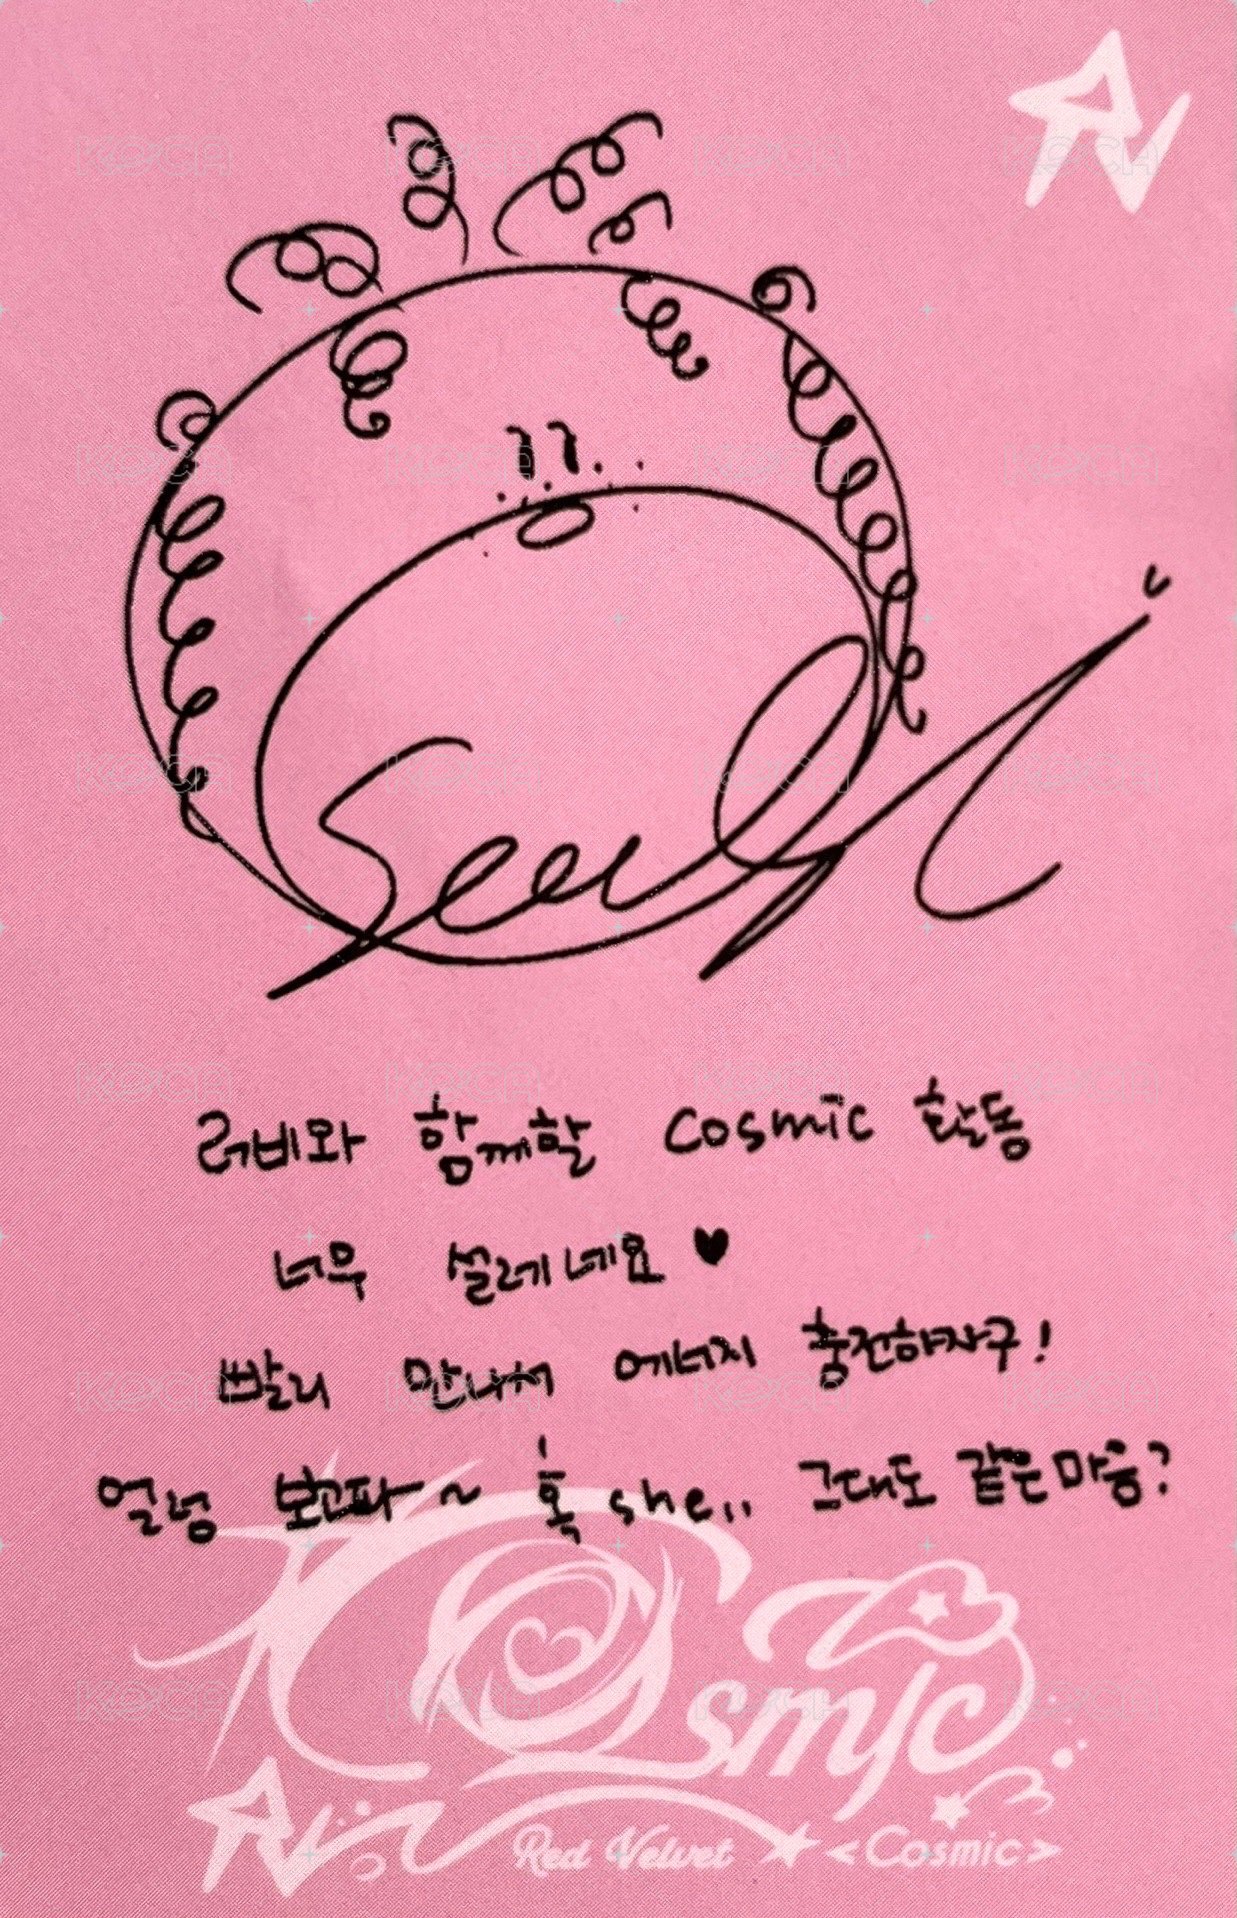 Seulgi
러비와 함께할 Cosmic 활동
너무 설레네요 ♥
빨리 만나서 에너지 충전하자구!
얼렁 보고파~ 혹 she.. 그대도 같은 마음?
Cosmic
Red Velvet <Cosmic>
KOCA